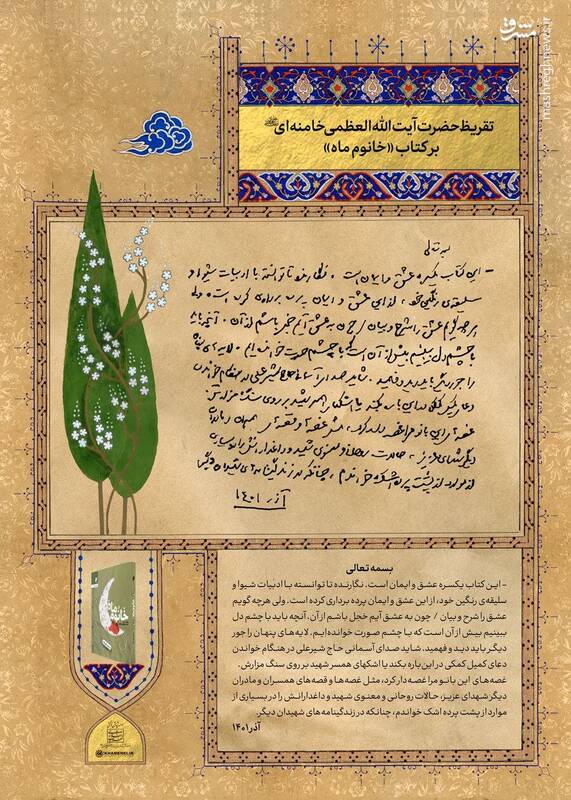 مشرق
mashreghnews.ir
تقریظ حضرت آیت الله العظمی خامنه‌ای
بر کتاب «خانوم ماه»
بسمه تعالی
- این کتاب یکسره عشق و ایمان است. نگارنده تا توانسته با ادبیات شیوا و
سلیقه‌ی رنگین خود، از این عشق و ایمان پرده برداری کرده است. ولی
هرچه گویم عشق را شرح و بیان / چون به عشق آیم خجل باشم از آن. آنچه باید
با چشم دل ببینیم بیش از آن است که با چشم صورت خوانده‌ایم. لایه‌های پنهان
را جور دیگر باید دید و فهمید. شاید صدای آسمانی حاج شیرعلی در هنگام خواندن
دعای کمیل کمکی در این باره بکند یا اشکهای همسر شهید بر روی سنگ مزارش.
غصه‌های این بانو مرا غصه‌دار کرد، مثل غصه‌ها و قصه‌های همسران و مادران
دیگر شهدای عزیز، حالات روحانی و معنوی شهید و داغدارانش را در بسیاری
از موارد از پشت پرده اشک خواندم، چنانکه در زندگینامه‌های شهیدان دیگر.
آذر ۱۴۰۱
خانوم
ماه
بسمه تعالی
- این کتاب یکسره عشق و ایمان است. نگارنده تا توانسته با ادبیات شیوا و
سلیقه‌ی رنگین خود، از این عشق و ایمان پرده برداری کرده است. ولی هرچه گویم
عشق را شرح و بیان / چون به عشق آیم خجل باشم از آن. آنچه باید با چشم دل
ببینیم بیش از آن است که با چشم صورت خوانده‌ایم. لایه‌های پنهان را جور
دیگر باید دید و فهمید. شاید صدای آسمانی حاج شیرعلی در هنگام خواندن
دعای کمیل کمکی در این باره بکند یا اشکهای همسر شهید بر روی سنگ مزارش.
غصه‌های این بانو مرا غصه‌دار کرد، مثل غصه‌ها و قصه‌های همسران و مادران
دیگر شهدای عزیز، حالات روحانی و معنوی شهید و داغدارانش را در بسیاری از
موارد از پشت پرده اشک خواندم، چنانکه در زندگینامه‌های شهیدان دیگر.
آذر ۱۴۰۱
KHAMENEI.IR